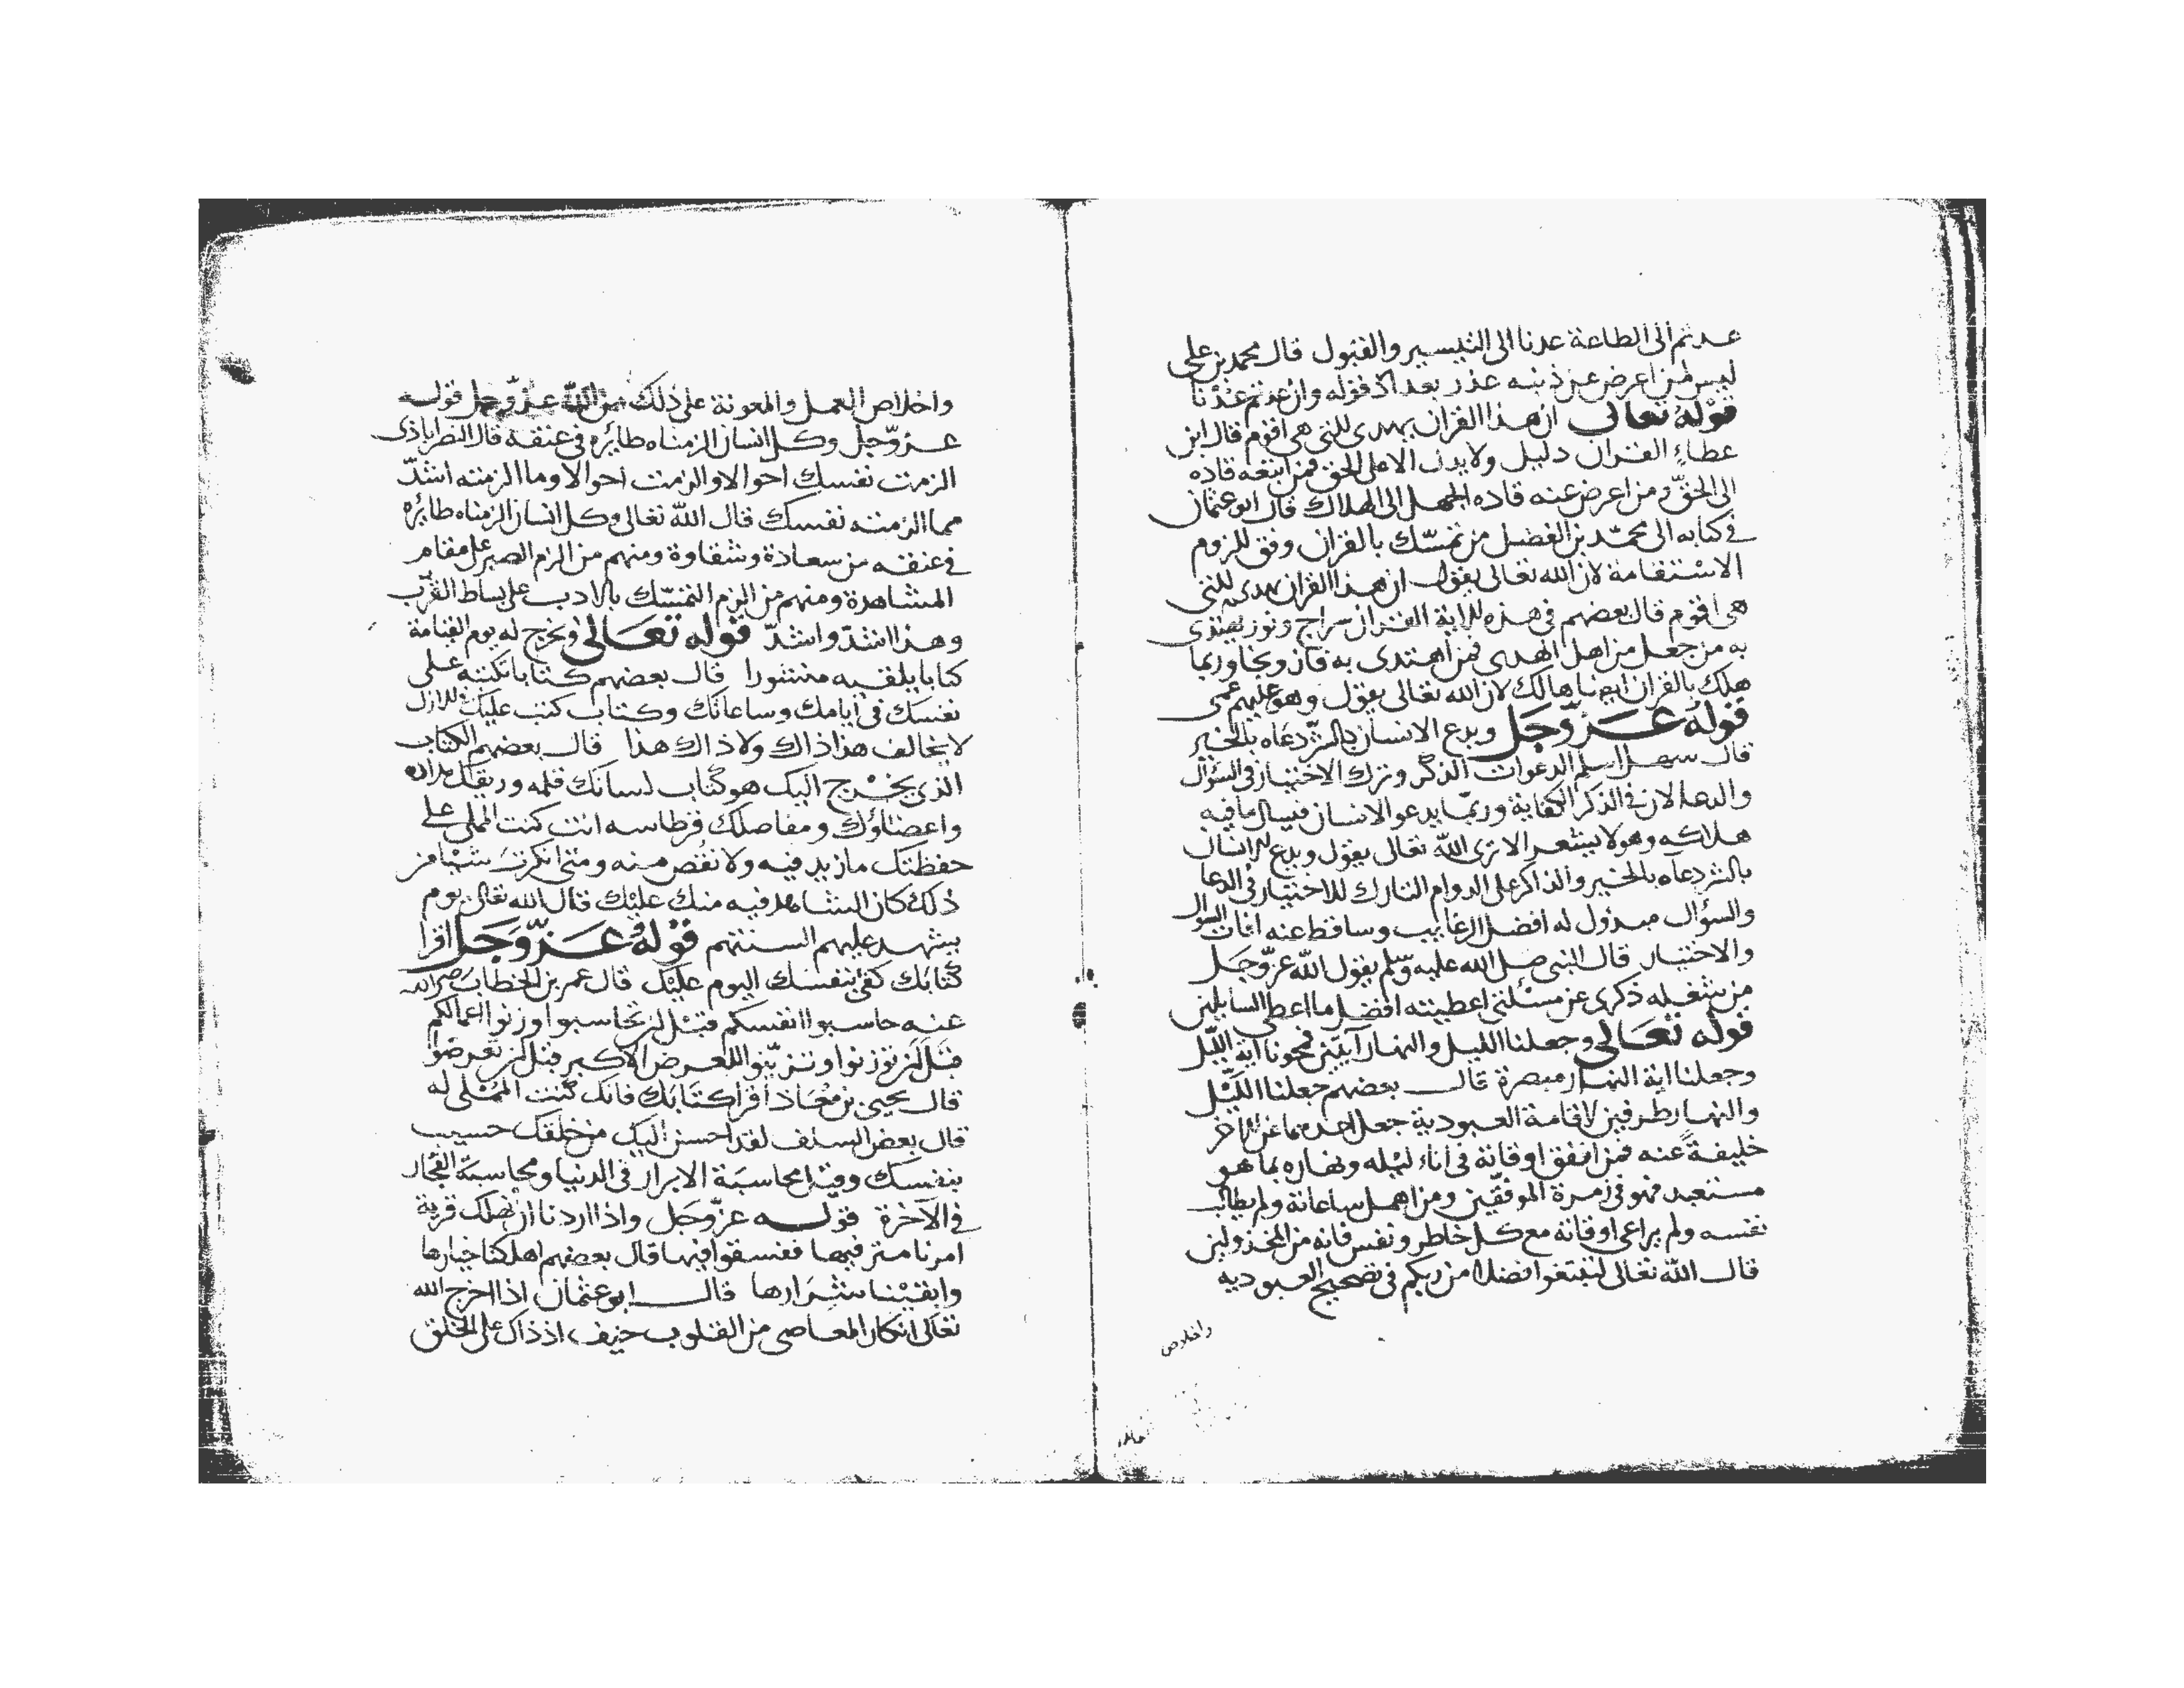 عدتم الى الطاعة عدنا الى التيسير والقبول قال محمد بن على
ليس لمن اعرض عن ذنبه عذر بعد اذ قوله وان عدتم عدنا
قوله تعالى ان هذا القران يهدى للتى هى اقوم قال ابن
عطاء القران دليل ولا يدل الا على الحق فمن اتبعه قاده
الى الحق ومن اعرض عنه قاده الجهل الى الهلاك قال ابو عثمان
فى كتابه الى محمد بن الفضل من تمسك بالقران وفق للزوم
الاستقامة لان الله تعالى يقول ان هذا القران يهدى للتى
هى اقوم قال بعضهم فى هذه الاية القران سراج ونور يهتدى
به من جعل من اهل الهدى فمن اهتدى به فاز ونجا وربما
هلك بالقران ايضا هالك لان الله تعالى يقول وهو عليهم عمى
قوله عز وجل ويدع الانسان بالشر دعاه بالخير
قال سهل اسلم الدعوات الذكر وترك الاختيار فى السؤال
والدعا لان فى الذكر الكفاية وربما يدعو الانسان فيسال ما فيه
هلاكه وهو لا يشعر الا ترى الله تعالى يقول ويدع الانسان
بالشر دعاه بالخير والذاكر على الدوام التارك للاختيار فى الدعا
والسؤال مبذول له افضل الرغايب وساقط عنه افات السؤال
والاختيار قال النبى صلى الله عليه وسلم يقول الله عز وجل
من شغله ذكرى عن مسئلتى اعطيته افضل ما اعطى السايلين
قوله تعالى وجعلنا الليل والنهار آيتين فمحونا اية الليل
وجعلنا اية النهار مبصرة قال بعضهم جعلنا الليل
والنهار طرفين لاقامة العبودية جعل احدهما عن الاخر
خليفة عنه فمن انفق اوقاته فى اناء ليله ونهاره بما هو
مستعبد فهو فى زمرة الموفقين ومن اهمل ساعاته ولم يطالب
نفسه ولم يراعى اوقاته مع كل خاطر ونفس فانه من المخذولين
قال الله تعالى لتبتغوا فضلا من ربكم فى تصحيح العبوديه
واخلاص
واخلاص العمل والمعونة على ذلك من الله عز وجل قوله
عز وجل وكل انسان الزمناه طائره فى عنقه قال النصراباذى
الزمت نفسك احوالا والزمت احوالا وما الزمته اشد
مما الزمته نفسك قال الله تعالى وكل انسان الزمناه طائره
فى عنقه من سعادة وشقاوة ومنهم من الزم الصبر على مقام
المشاهدة ومنهم من الزم التمسك بالادب على بساط القرب
وهذا اشد واشد قوله تعالى ونخرج له يوم القيامة
كتابا يلقيه منشورا قال بعضهم كتابا تكتبه على
نفسك فى ايامك وساعاتك وكتاب كتب عليك فى الازل
لا يخالف هذا ذاك ولا ذاك هذا قال بعضهم الكتاب
الذى يخرج اليك هو كتاب لسانك قلمه وريقك مداده
واعضاؤك ومفاصلك قرطاسه انت كنت المملى على
حفظتك ما زيد فيه ولا نقص منه ومتى انكرت شيئا من
ذلك كان الشاهد فيه منك عليك قال الله تعالى يوم
يشهد عليهم السنتهم قوله عز وجل اقرا
كتابك كفى بنفسك اليوم عليك قال عمر بن الخطاب رضى الله
عنه حاسبوا انفسكم قبل ان تحاسبوا وزنوا اعمالكم
قبل ان توزنوا وتزينوا للعرض الاكبر قبل ان تعرضوا
قال يحيى بن معاذ اقرا كتابك فانك كنت المملى له
قال بعض السلف لقد احسن اليك من خلقك حسيب
بنفسك وقيل محاسبة الابرار فى الدنيا ومحاسبة الفجار
فى الآخرة قوله عز وجل واذا اردنا ان نهلك قرية
امرنا مترفيها ففسقوا فيها قال بعضهم اهلكنا خيارها
وابقينا شرارها قال ابو عثمان اذا اخرج الله
تعالى انكار المعاصى من القلوب حيف اذ ذاك على الخلق